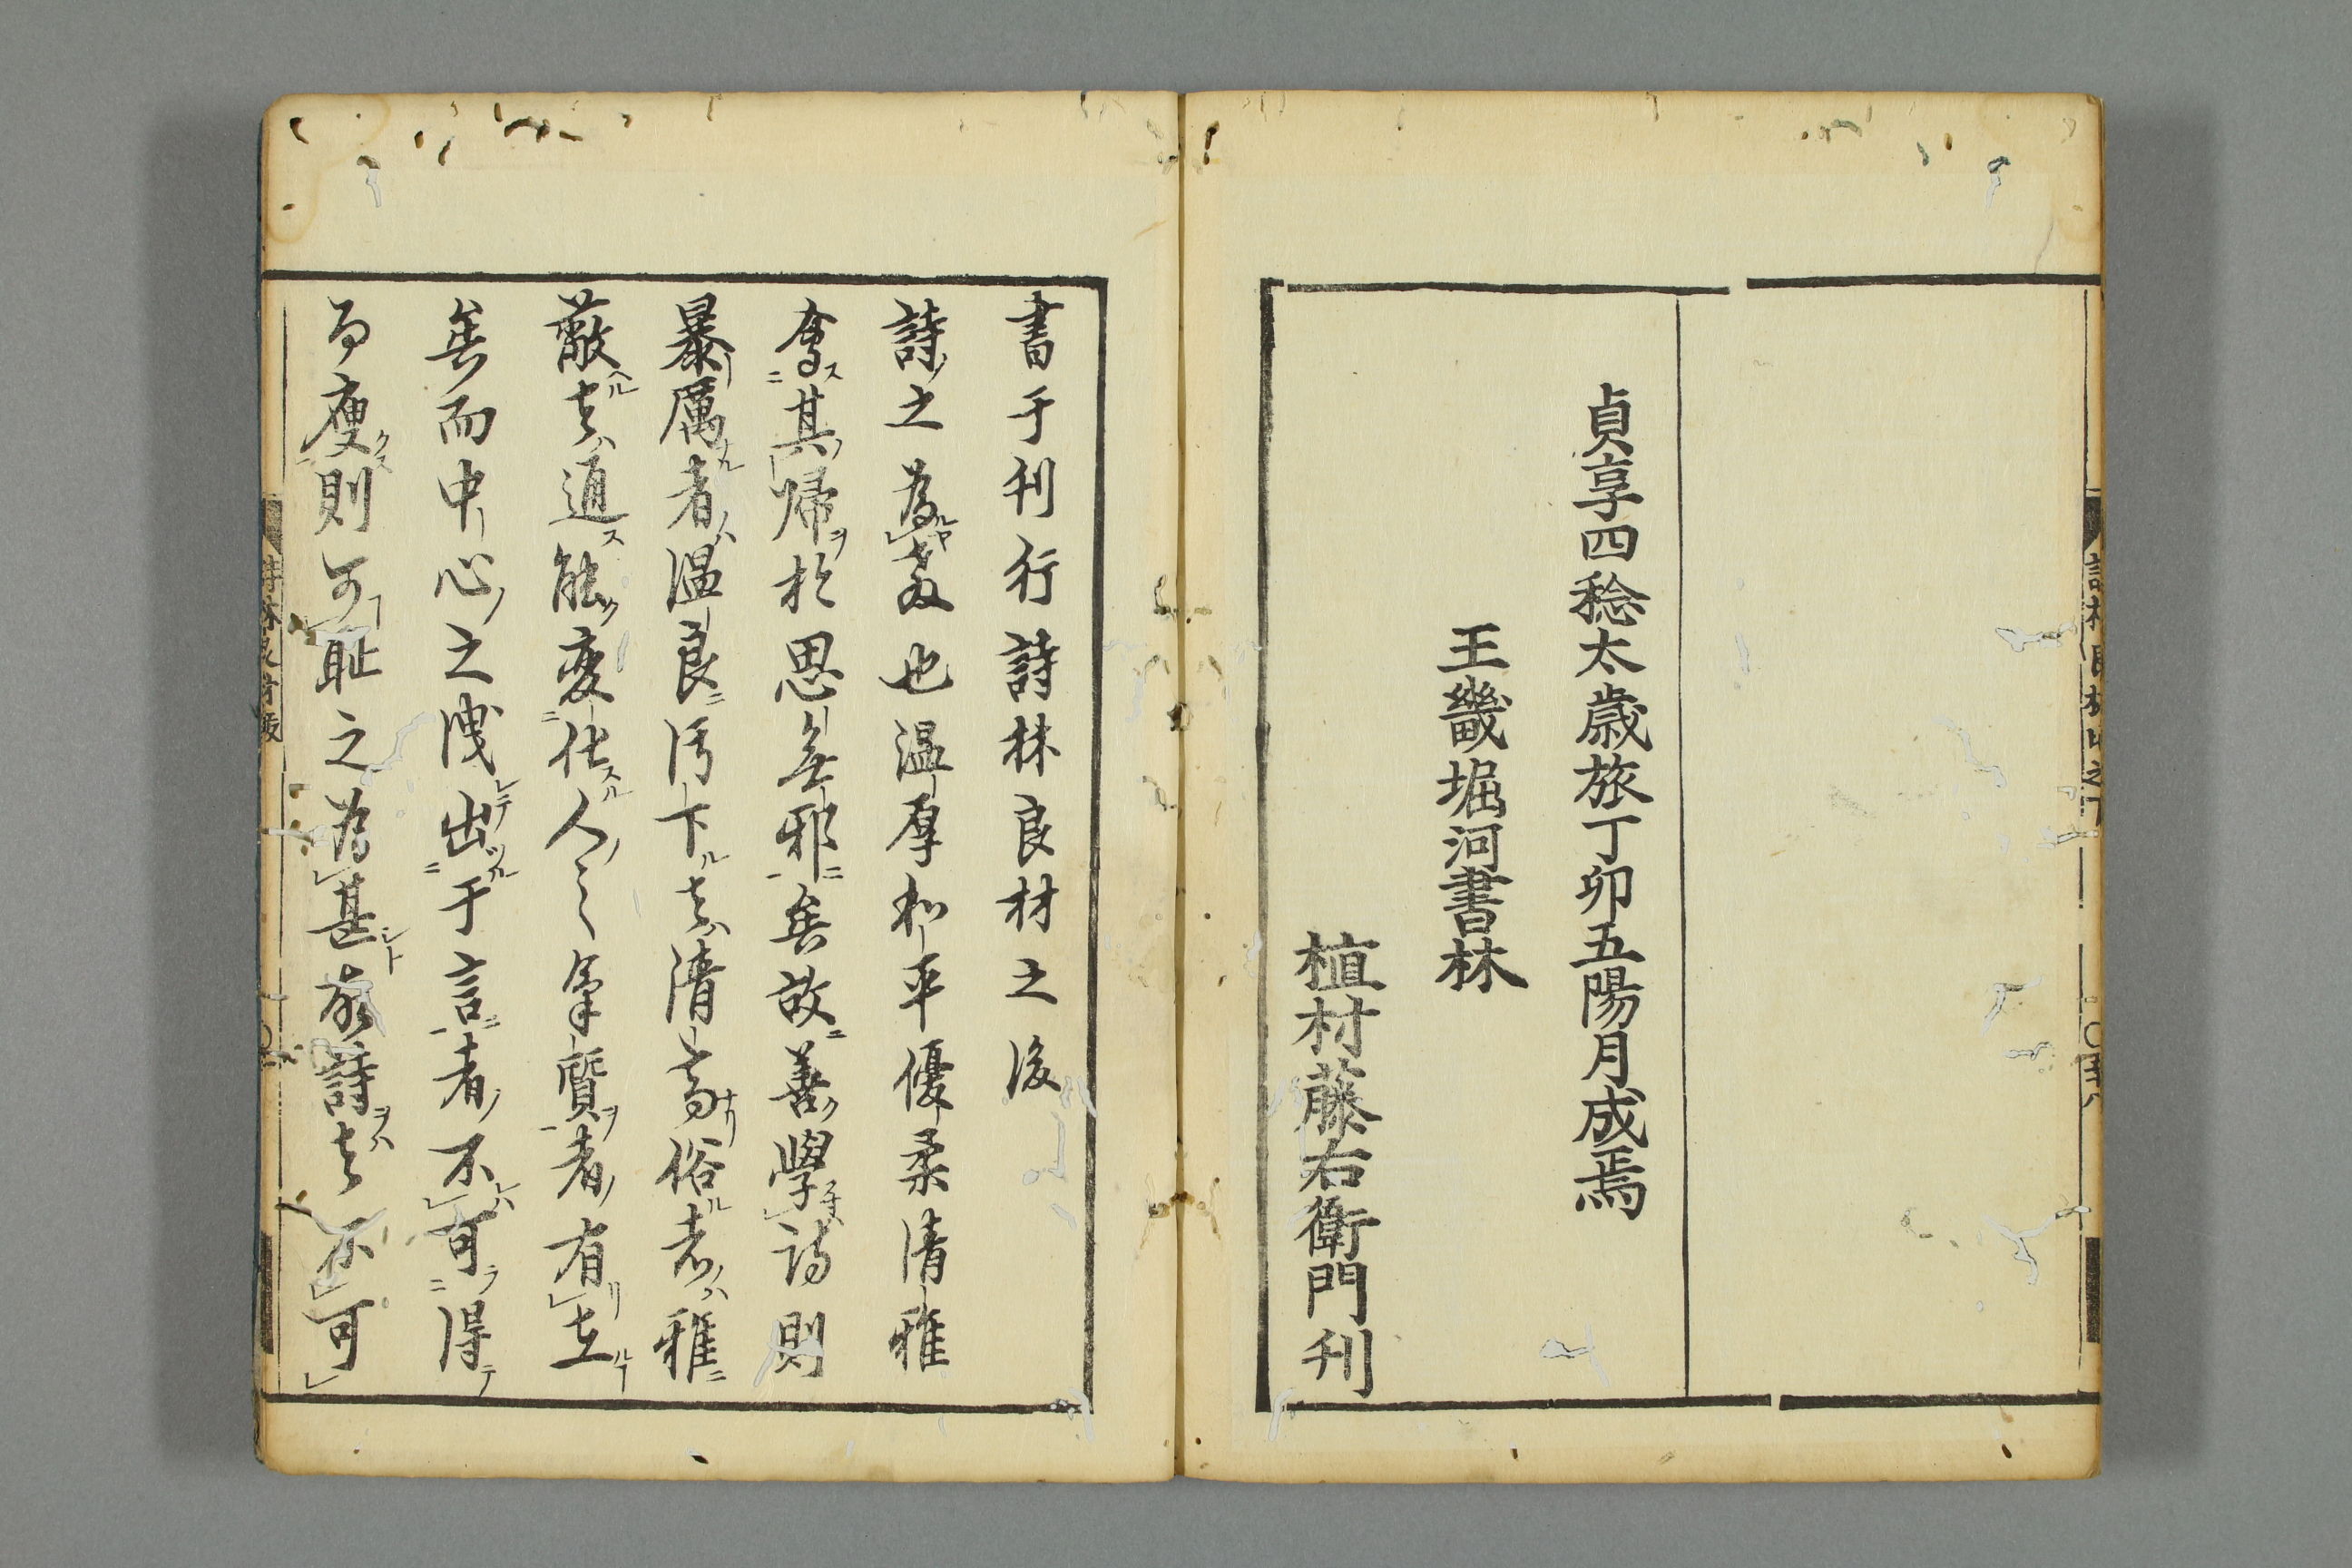 貞享四稔太歳旅丁卯五陽月成焉
王畿堀河書林
植村藤右衛門刊
書于刊行詩林良材之後
詩之為教也温厚和平優柔清雅
會其帰於思無邪矣故善學詩則
暴厲者温良汚下者清高俗者雅
蔽者通能変化人之氣質者有在
矣而中心之洩出于言者不可得
而廋則可耻之為甚故詩者不可
詩林良材跋